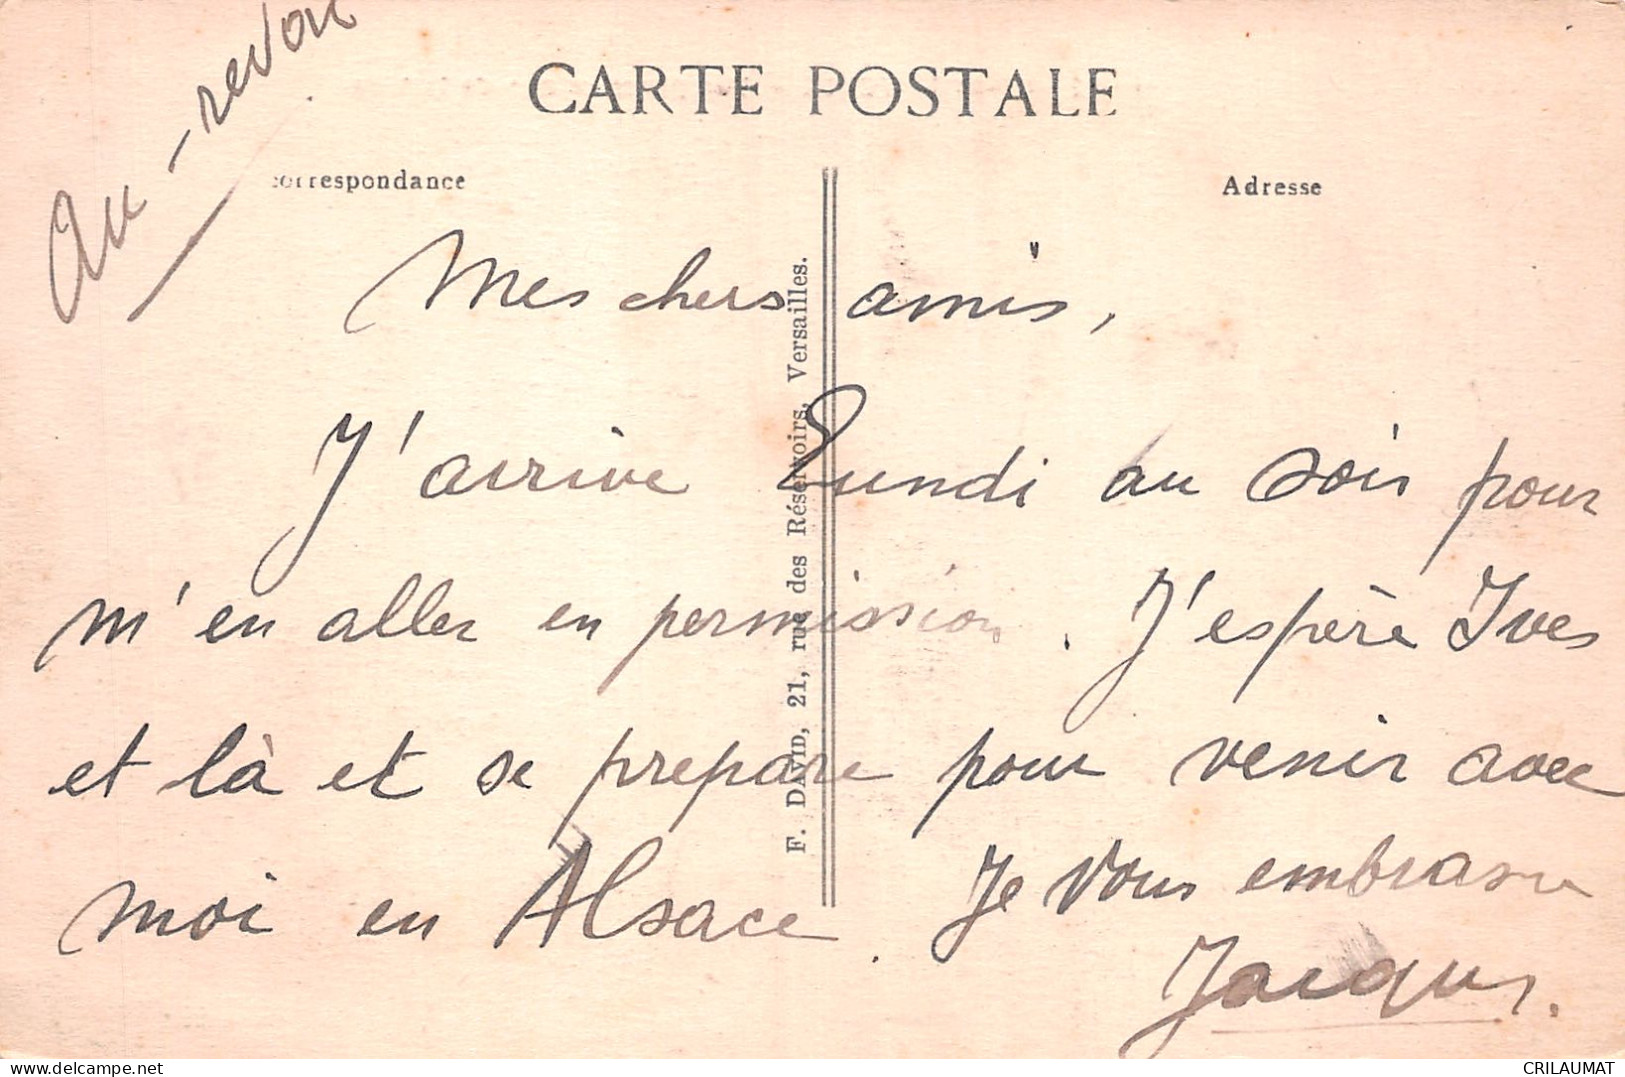 Au-revoir
CARTE POSTALE
Correspondance
Adresse
Mes chers amis,
J'arrive Lundi au soir pour
m'en aller en permission. J'espère Yves
et là et se prepare pour venir avec
moi en Alsace. Je vous embrasse
Jacques.
F. DAVID, 21, rue des Réservoirs, Versailles.
www.delcampe.net
CRILAUMAT